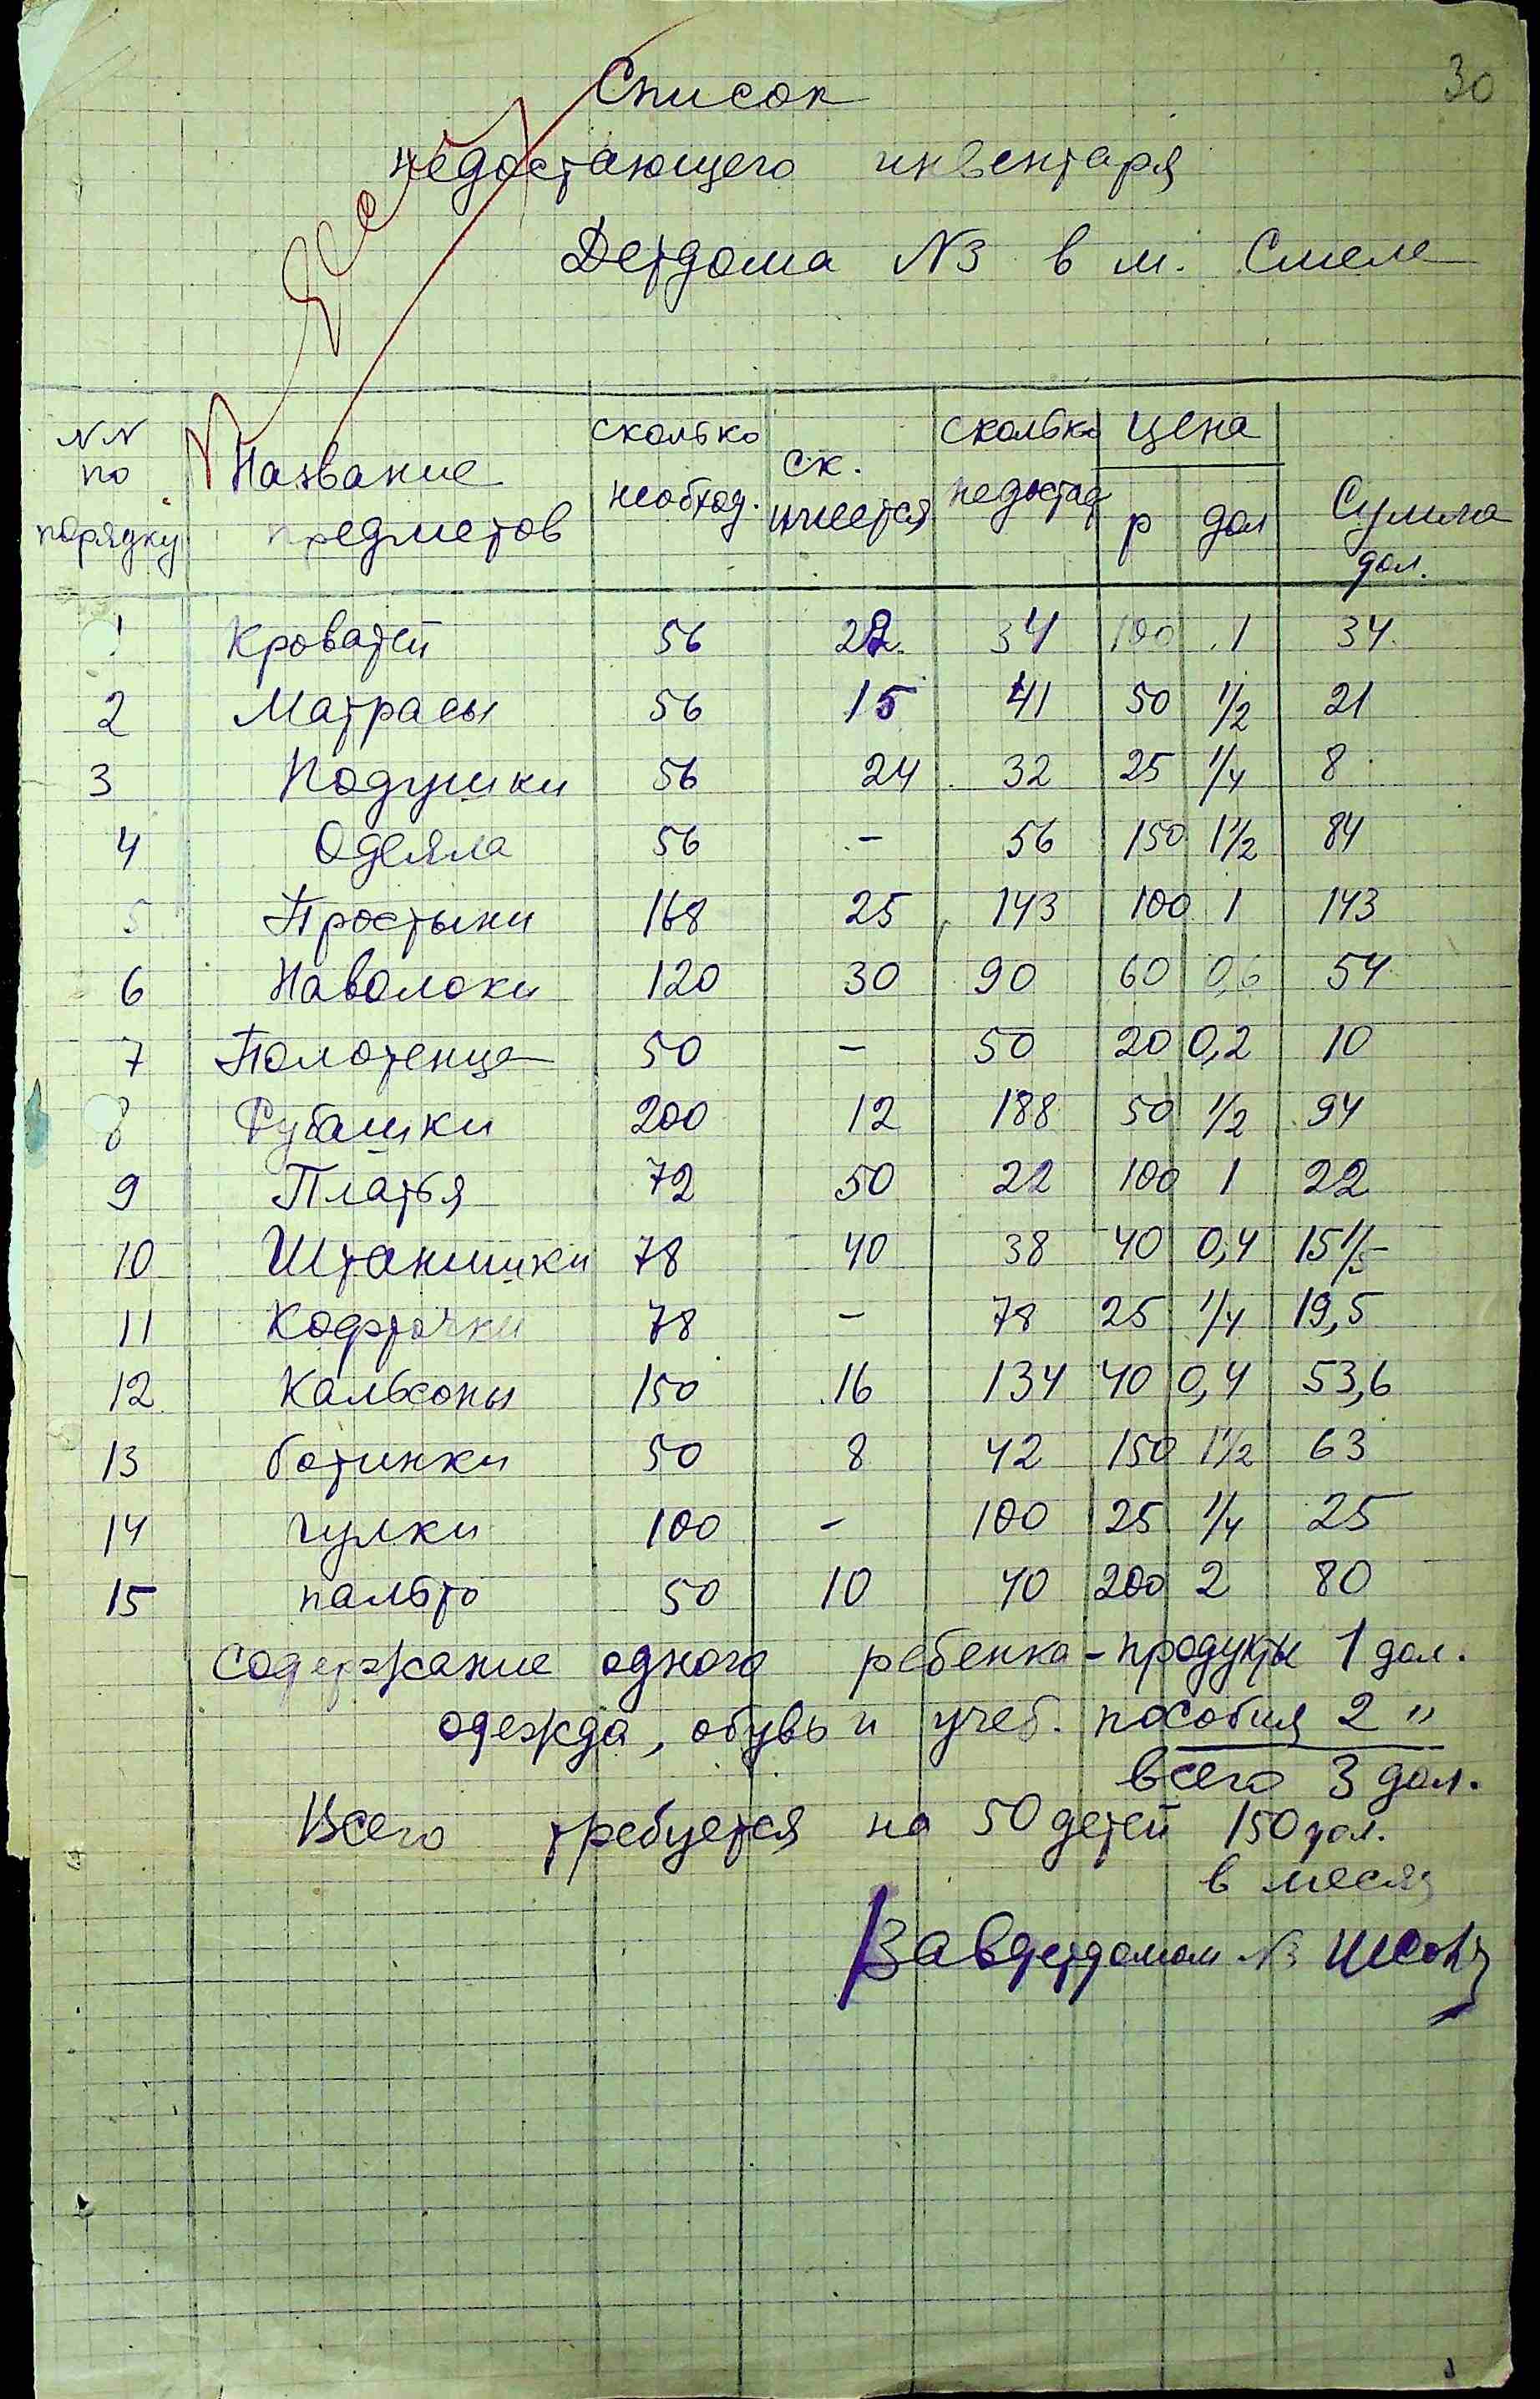 30
Список
недостающего инвентаря
Детдома N3 в м. Смеле
NN по порядку Название предметов сколько необход. ск. имеется сколько недостад цена р дол Сумма дол.
1 Кроватей 56 22. 34 100 1 34
2 Матрасы 56 15 41 50 1/2 21
3 Подушки 56 24 32 25 1/4 8
4 Одеяла 56 - 56 150 1 1/2 84
5 Простыни 168 25 143 100 1 143
6 Наволоки 120 30 90 60 0,6 54
7 Полотенца 50 - 50 20 0,2 10
8 Рубашки 200 12 188 50 1/2 94
9 Платья 72 50 22 100 1 22
10 Штанишки 78 40 38 40 0,4 15 1/5
11 Кофточки 78 - 78 25 1/4 19,5
12 Кальсоны 150 16 134 40 0,4 53,6
13 ботинки 50 8 42 150 1 1/2 63
14 чулки 100 - 100 25 1/4 25
15 пальто 50 10 40 200 2 80
Содержание одного ребенка - продукты 1 дол.
одежда, обувь и учеб. пособия 2 "
всего 3 дол.
Всего требуется на 50 детей 150 дол.
в месяц
Завдетдомом N3